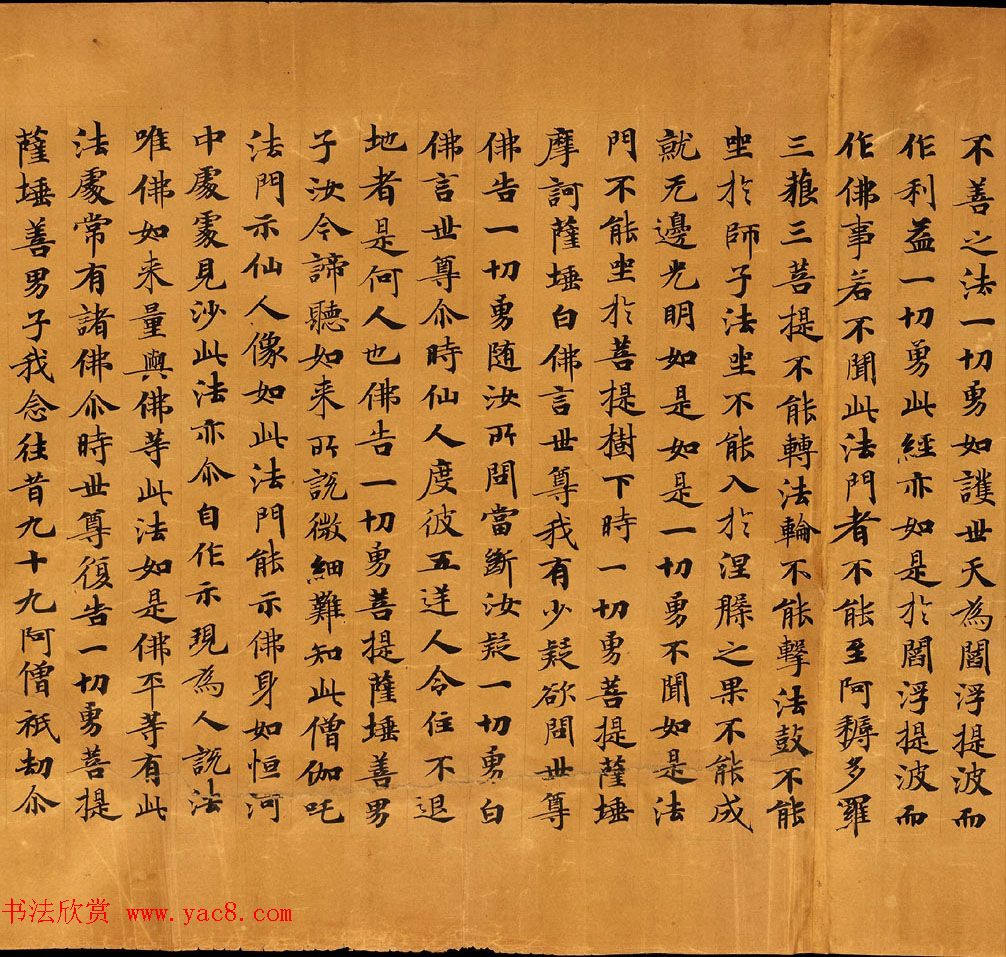 不善之法一切勇如護世天為閻浮提波而
作利益一切勇此經亦如是於閻浮提波而
作佛事若不聞此法門者不能至阿耨多羅
三藐三菩提不能轉法輪不能擊法鼓不能
坐於師子法坐不能入於涅槃之果不能成
就无邊光明如是如是一切勇不聞如是法
門不能坐於菩提樹下時一切勇菩提薩埵
摩訶薩埵白佛言世尊我有少疑欲問世尊
佛告一切勇随汝所問當斷汝疑一切勇白
佛言世尊尒時仙人度彼五逆人令住不退
地者是何人也佛告一切勇菩提薩埵善男
子汝今諦聽如来所說微細難知此僧伽吒
法門示仙人像如此法門能示佛身如恒河
中處處見沙此法亦尒自作示現為人說法
唯佛如来量與佛等此法如是佛平等有此
法處常有諸佛尒時世尊復告一切勇菩提
薩埵善男子我念往昔九十九阿僧祇劫尒
书法欣赏 www.yac8.com